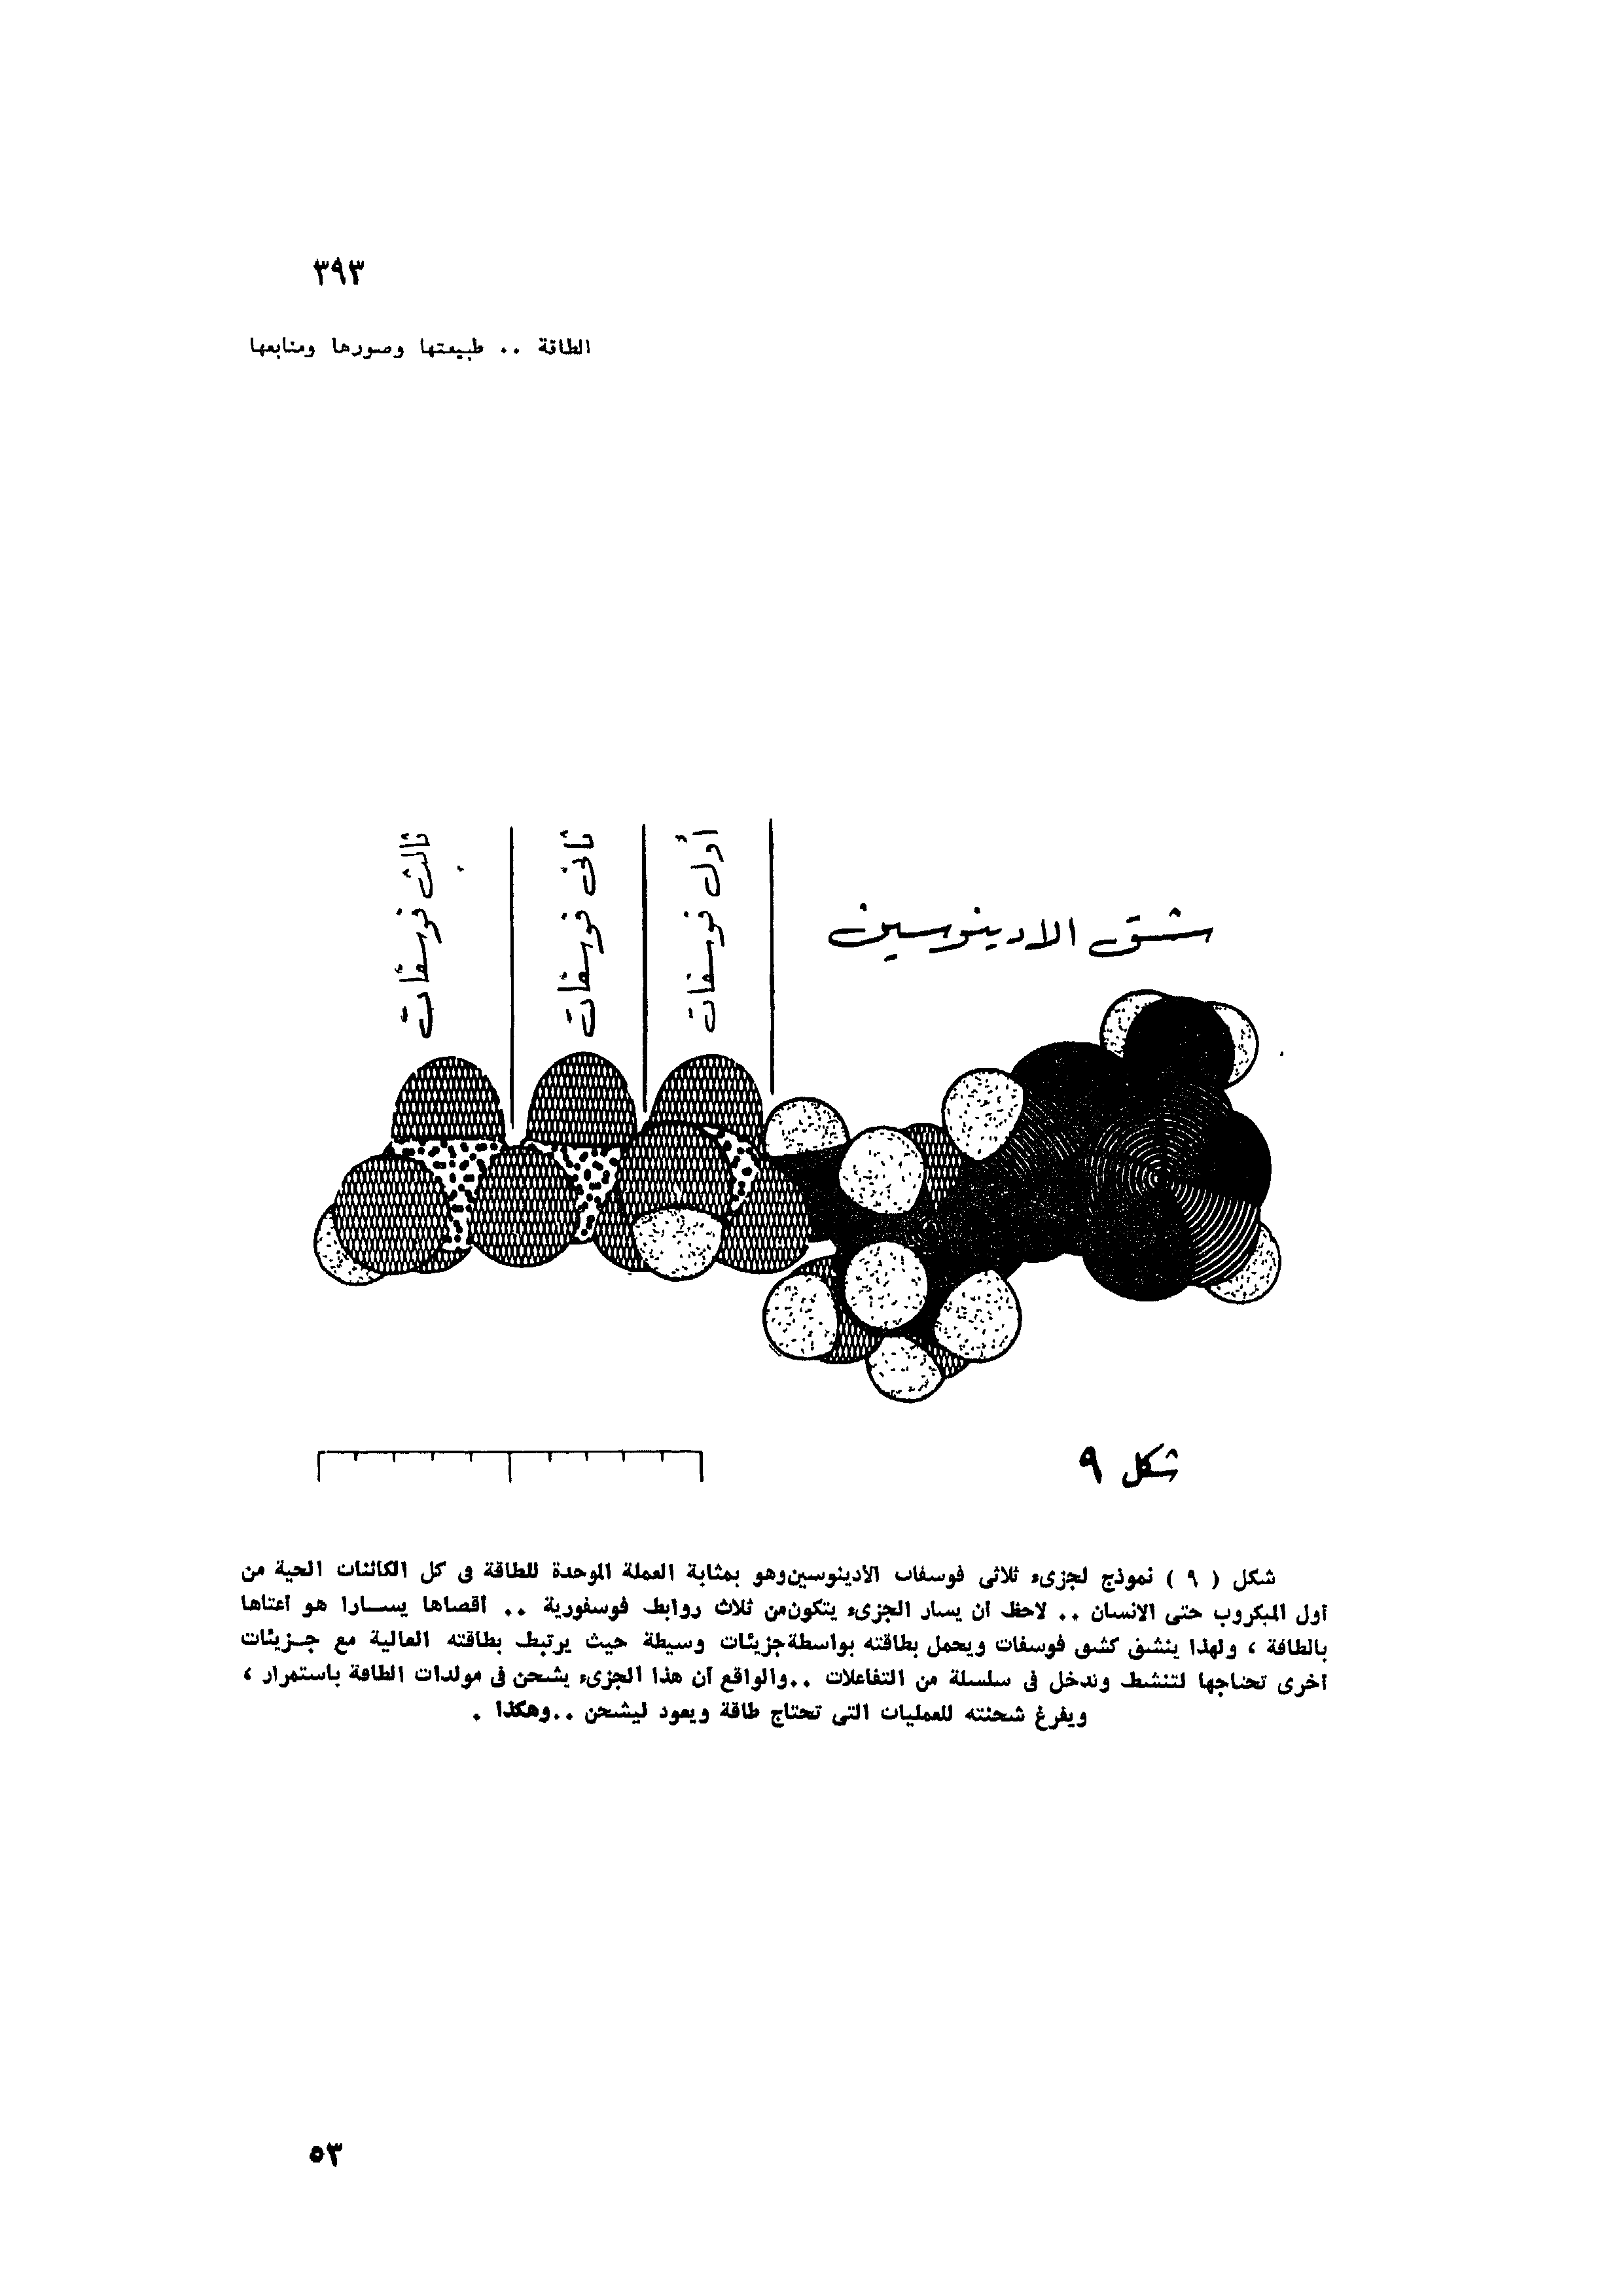 ٣٩٣
الطاقة .. طبيعتها وصورها ومنابعها
ثالث فوسفات
ثانى فوسفات
أول فوسفات
شق الادينوسين
شكل ٩
شكل ( ٩ ) نموذج لجزىء ثلاثى فوسفات الأدينوسين وهو بمثابة العملة الموحدة للطاقة فى كل الكائنات الحية من
أول الميكروب حتى الانسان .. لاحظ أن يسار الجزىء يتكون من ثلاث روابط فوسفورية .. أقصاها يسارا هو أعتاها
بالطاقة ، ولهذا ينشق كشق فوسفات ويحمل بطاقته بواسطة جزيئات وسيطة حيث يرتبط بطاقته العالية مع جزيئات
أخرى تحتاجها لتنشط وتدخل فى سلسلة من التفاعلات .. والواقع أن هذا الجزىء يشحن فى مولدات الطاقة باستمرار ،
ويفرغ شحنته للعمليات التى تحتاج طاقة ويعود ليشحن .. وهكذا .
٥٣